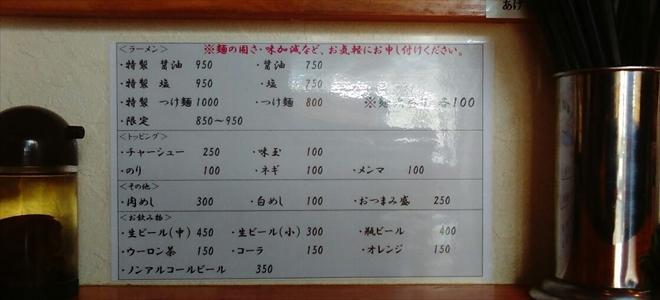 あけ
<ラーメン> ※麺の固さ・味加減など、お気軽にお申し付けください。
・特製 醤油 950 ・醤油 750
・特製 塩 950 ・塩 750
・特製 つけ麺 1000 ・つけ麺 800 ※麺 各100
・限定 850～950
<トッピング>
・チャーシュー 250 ・味玉 100
・のり 100 ・ネギ 100 ・メンマ 100
<その他>
・肉めし 300 ・白めし 100 ・おつまみ盛 250
<お飲み物>
・生ビール(中) 450 ・生ビール(小) 300 ・瓶ビール 400
・ウーロン茶 150 ・コーラ 150 ・オレンジ 150
・ノンアルコールビール 350